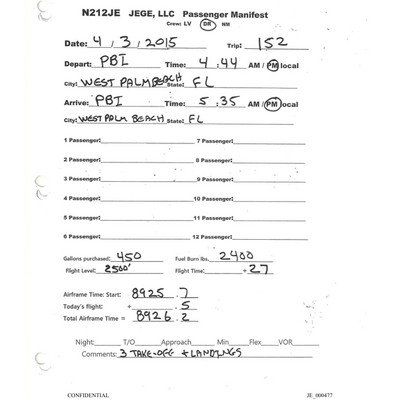 N212JE JEGE, LLC Passenger Manifest
Crew: LV DR NM
Date: 4/3/2015 Trip: 152
Depart: PBI Time: 4:44 AM / PM local
City: WEST PALM BEACH State: FL
Arrive: PBI Time: 5:35 AM / PM local
City: WEST PALM BEACH State: FL
1 Passenger: 7 Passenger:
2 Passenger: 8 Passenger:
3 Passenger: 9 Passenger:
4 Passenger: 10 Passenger:
5 Passenger: 11 Passenger:
6 Passenger: 12 Passenger:
Gallons purchased: 450 Fuel Burn lbs. 2400
Flight Level: 2500' Flight Time: +27
Airframe Time: Start: 8925.7
Today's flight: + .5
Total Airframe Time = 8926.2
Night: T/O Approach Min Flex VOR
Comments: 3 TAKE-OFF + LANDINGS
CONFIDENTIAL JE_000477